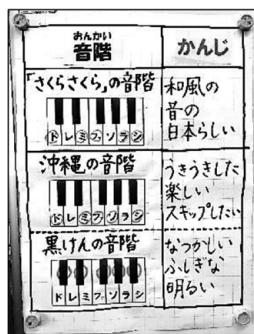 おんかい
音階
かんじ
「さくらさくら」の音階
ド レ ミ ファ ソ ラ シ
和風の
音の
日本らしい
沖縄の音階
ド レ ミ ファ ソ ラ シ
うきうきした
楽しい
スキップしたい
黒けんの音階
ド レ ミ ファ ソ ラ シ
なつかしい
ふしぎな
明るい